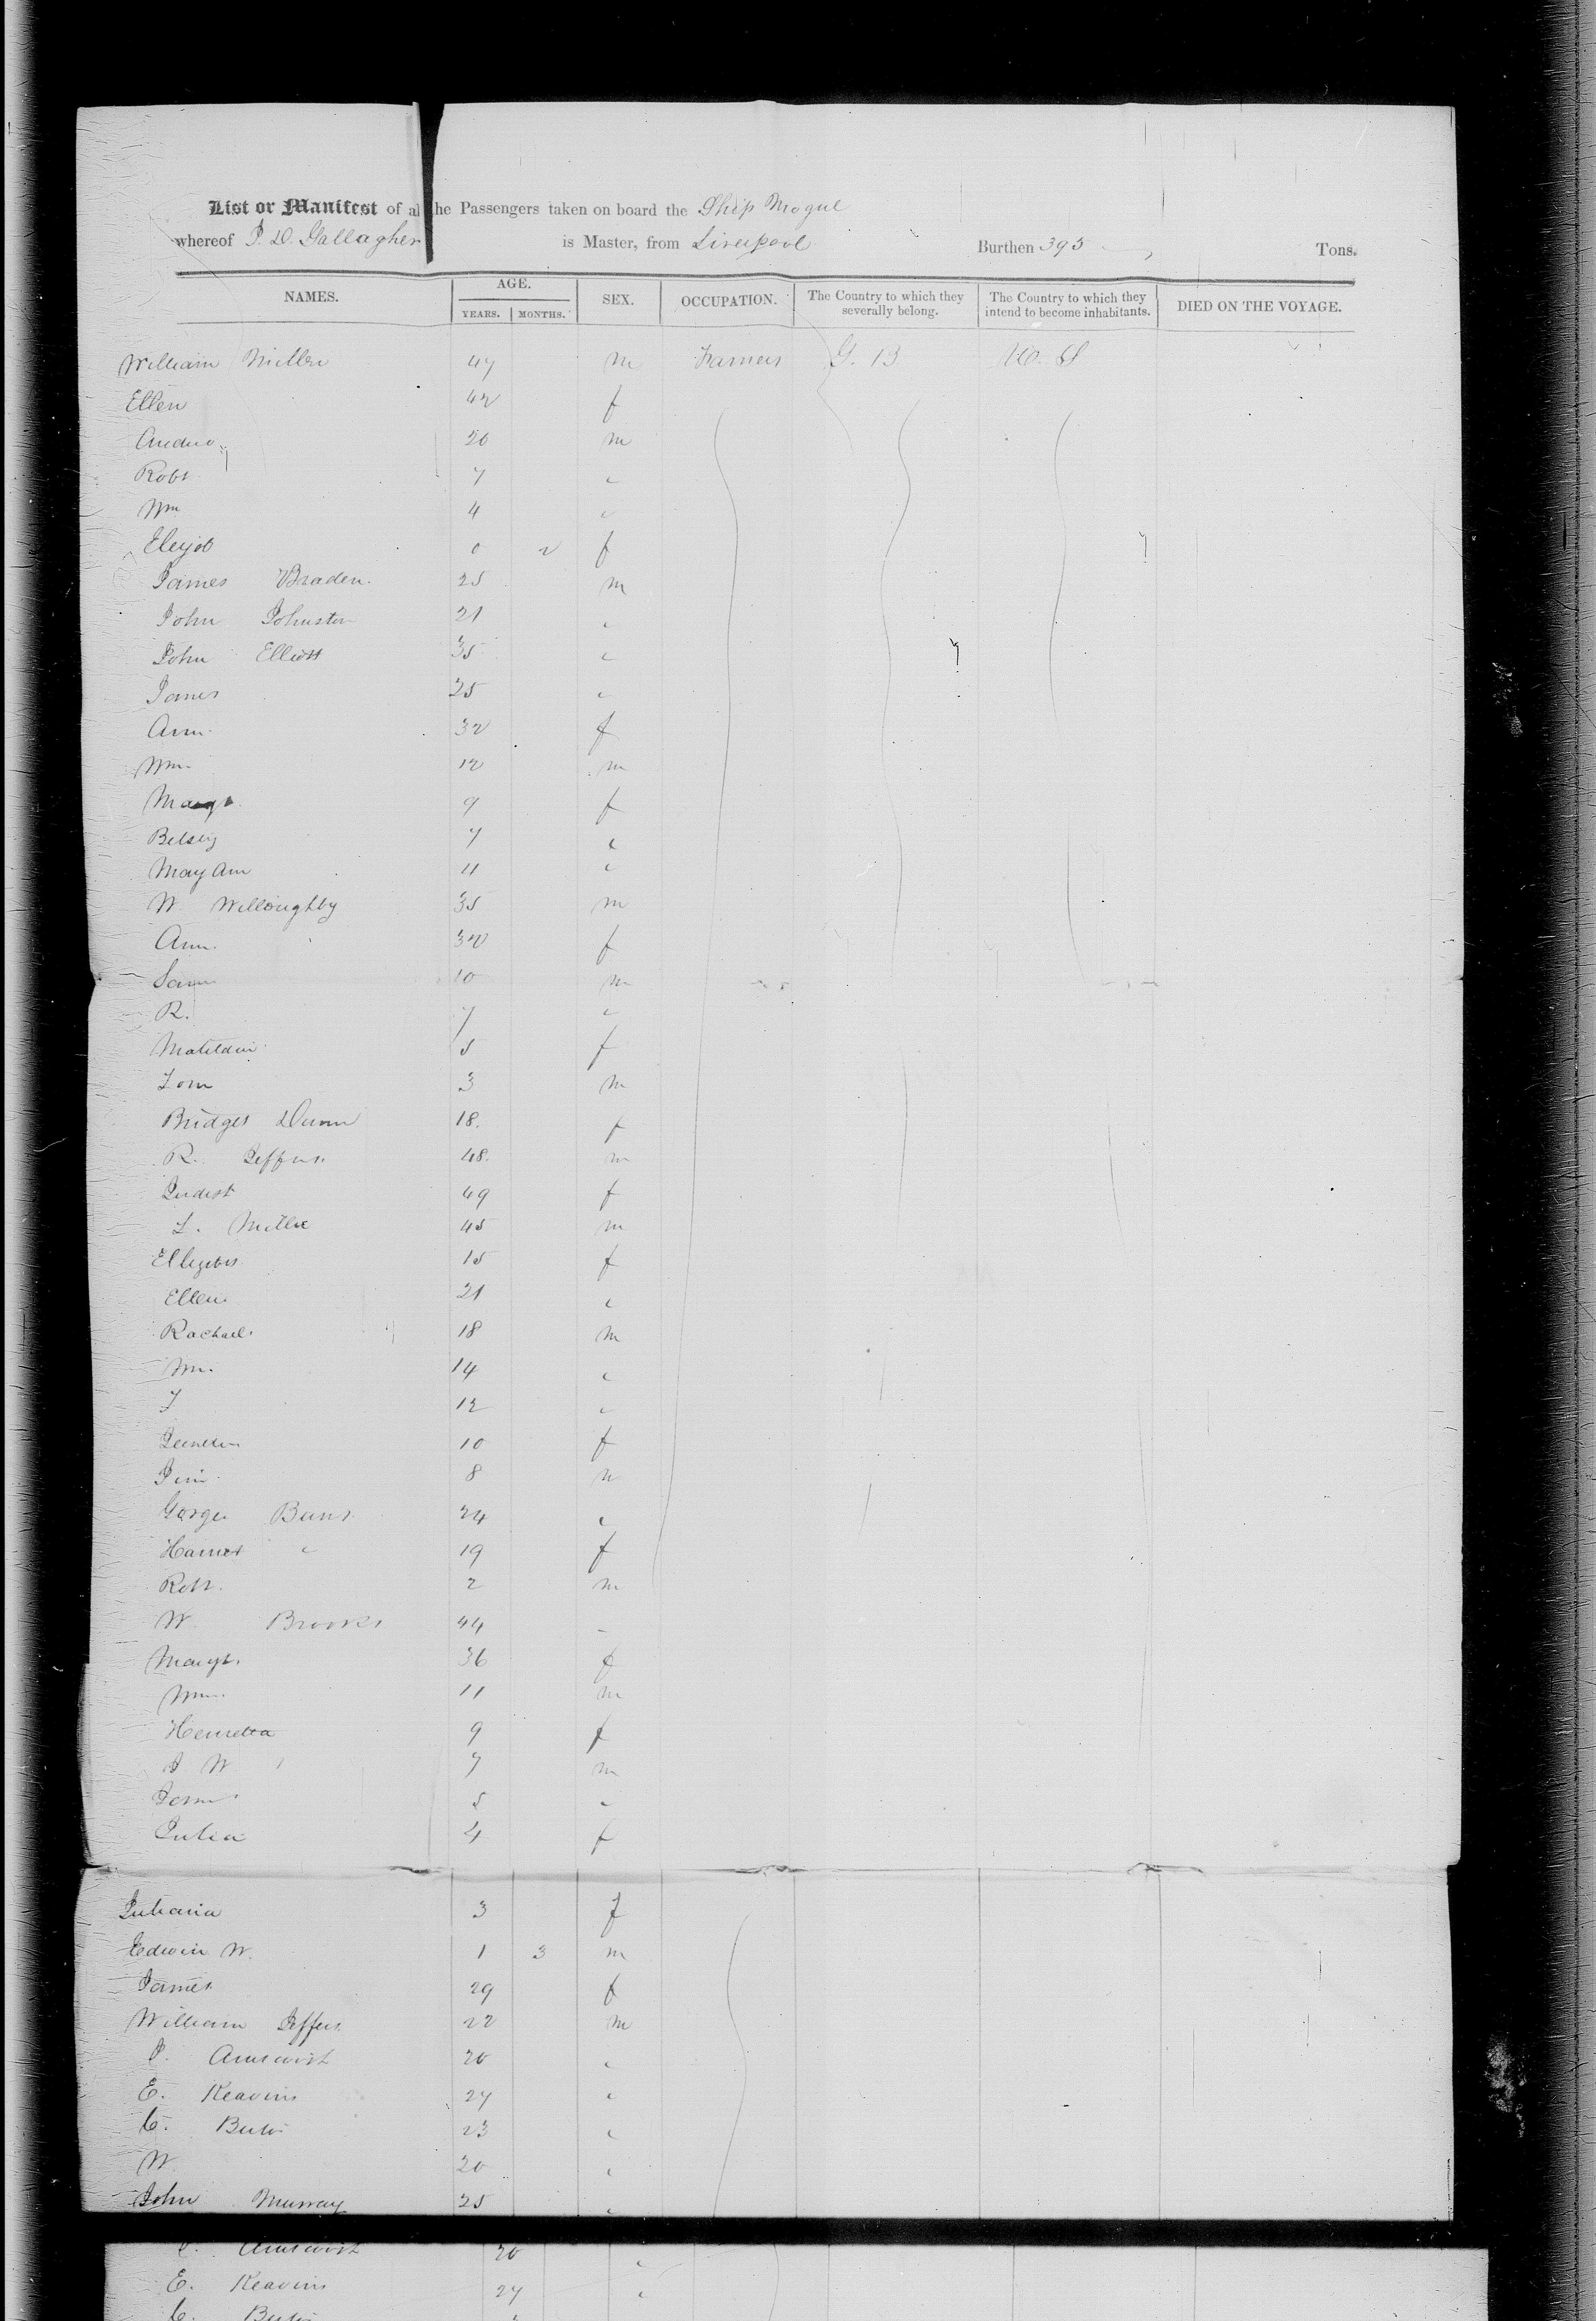 List or Manifest of al he Passengers taken on board the Ship Mogul
whereof P. D. Gallagher is Master, from Liverpool Burthen 395 Tons.
NAMES. AGE. YEARS. MONTHS. SEX. OCCUPATION. The Country to which they severally belong. The Country to which they intend to become inhabitants. DIED ON THE VOYAGE.
William Miller 47 m Farmers G. B U. S
Ellen 42 f
Andrew 20 m
Robt 7 "
Wm 4 "
0 2 f
James Braden. 25 m
John Johnston 21 "
John Elliott 35 "
James 25 "
Ann. 32 f
Wm. 12 m
Margt. 9 f
Betsey 7 "
May Ann 4 "
W Willoughby 35 m
Ann. 32 f
Sam 10 m
R. 7 "
Matilda 5 f
Tom 3 m
Bridget Dunn 18. f
R. Jeffers. 48. m
49 f
Miller 45 m
15 f
Ellen. 21 "
Rachael. 18 m
Wm. 14 "
12 "
10 f
Jim. 8 m
George Burns. 24 "
Harriet " 19 f
Robt. 2 m
W Brooks 44 "
Margt. 36 f
Wm. 11 m
Henretta 9 f
J W 7 m
5 "
Julia 4 f
Juliania 3 f
Edwin W. 1 3 m
29 f
William Jeffers 22 m
20 "
E. Keavins 27 "
C. 23 "
W 20 "
John Murray 25 "
20 "
E. Keavins 27 "
C.